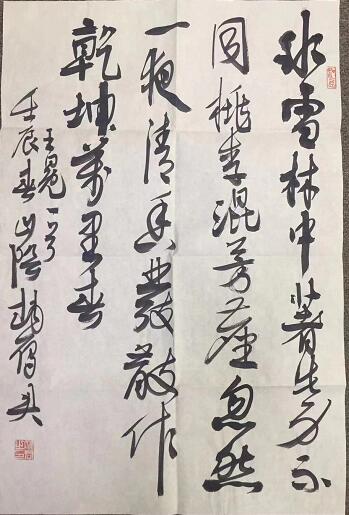 冰雪林中著此身不
同桃李混芳塵忽然
一夜清香發散作
乾坤萬里春
王冕一首
壬辰春山陰